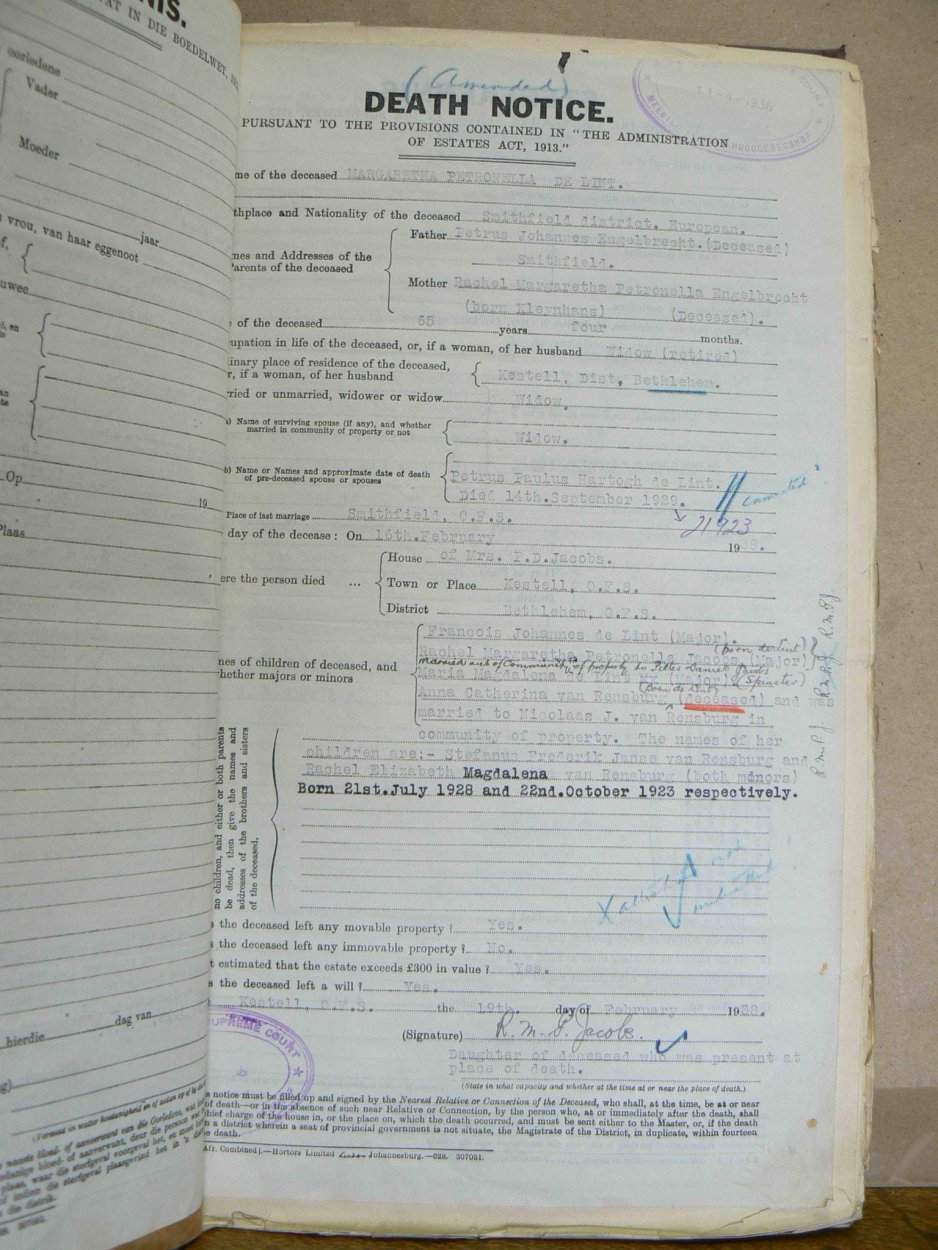 NIS.
AT IN DIE BOEDELWET,
oorledene
Vader
Moeder
vrou, van haar eggenoot
jaar
Op
19
Plaas
hierdie
dag van
(Amended)
DEATH NOTICE.
PURSUANT TO THE PROVISIONS CONTAINED IN "THE ADMINISTRATION
OF ESTATES ACT, 1913."
me of the deceased MARGARETHA PETRONELLA DE LINT.
thplace and Nationality of the deceased Smithfield district. European.
nes and Addresses of the
arents of the deceased
Father Petrus Johannes Engelbrecht.(Deceased)
Smithfield.
Mother Rachel Margaretha Petronella Engelbrecht
(born Kleynhans) (Deceased).
of the deceased 65 years four months.
upation in life of the deceased, or, if a woman, of her husband Widow (retired)
inary place of residence of the deceased,
r, if a woman, of her husband
Kestell, Dist, Bethlehem.
ried or unmarried, widower or widow Widow.
a) Name of surviving spouse (if any), and whether
married in community of property or not
Widow.
b) Name or Names and approximate date of death
of pre-deceased spouse or spouses
Petrus Paulus Hartogh de Lint.
Died 14th.September 1929.
21923
Place of last marriage Smithfield, O.F.S.
day of the decease: On 16th.February 19
ere the person died ...
House of Mrs. P.D.Jacobs.
Town or Place Kestell, O.F.S.
District Bethlehem, O.F.S.
nes of children of deceased, and
hether majors or minors
Francois Johannes de Lint (Major).
(born de Lint)
Rachel Margaretha Petronella Jacobs (Major)
married out of Community of property to Petrus Daniel Jacobs
Maria Magdalena de Lint (Major) (Spinster)
(born de Lint)
Anna Catherina van Rensburg (deceased) and was
married to Nicolaas J. van Rensburg in
community of property. The names of her
children are:- Stefanus Frederik Janse van Rensburg and
Rachel Elizabeth Magdalena van Rensburg (both minors)
Born 21st.July 1928 and 22nd.October 1923 respectively.
R.M.P.J
R.M.P.J
R.M.P.J
no children, and either or both parents
be dead, then give the names and
addresses of the brothers and sisters
of the deceased.
s the deceased left any movable property? Yes.
s the deceased left any immovable property? No.
t estimated that the estate exceeds £300 in value? Yes.
s the deceased left a will? Yes.
Kestell, O.F.S. the 19th. day of February 1938.
(Signature) R. M. P. Jacobs.
Daughter of deceased who was present at
place of death.
(State in what capacity and whether at the time at or near the place of death.)
SUPREME COURT
s notice must be filled up and signed by the Nearest Relative or Connection of the Deceased, who shall, at the time, be at or near
of death—or in the absence of such near Relative or Connection, by the person who, at or immediately after the death, shall
chief charge of the house in, or the place on, which the death occurred, and must be sent either to the Master, or, if the death
n a district wherein a seat of provincial government is not situate, the Magistrate of the District, in duplicate, within fourteen
e death.
Afr. Combined).—Hortors Limited Johannesburg.—628. 207051.